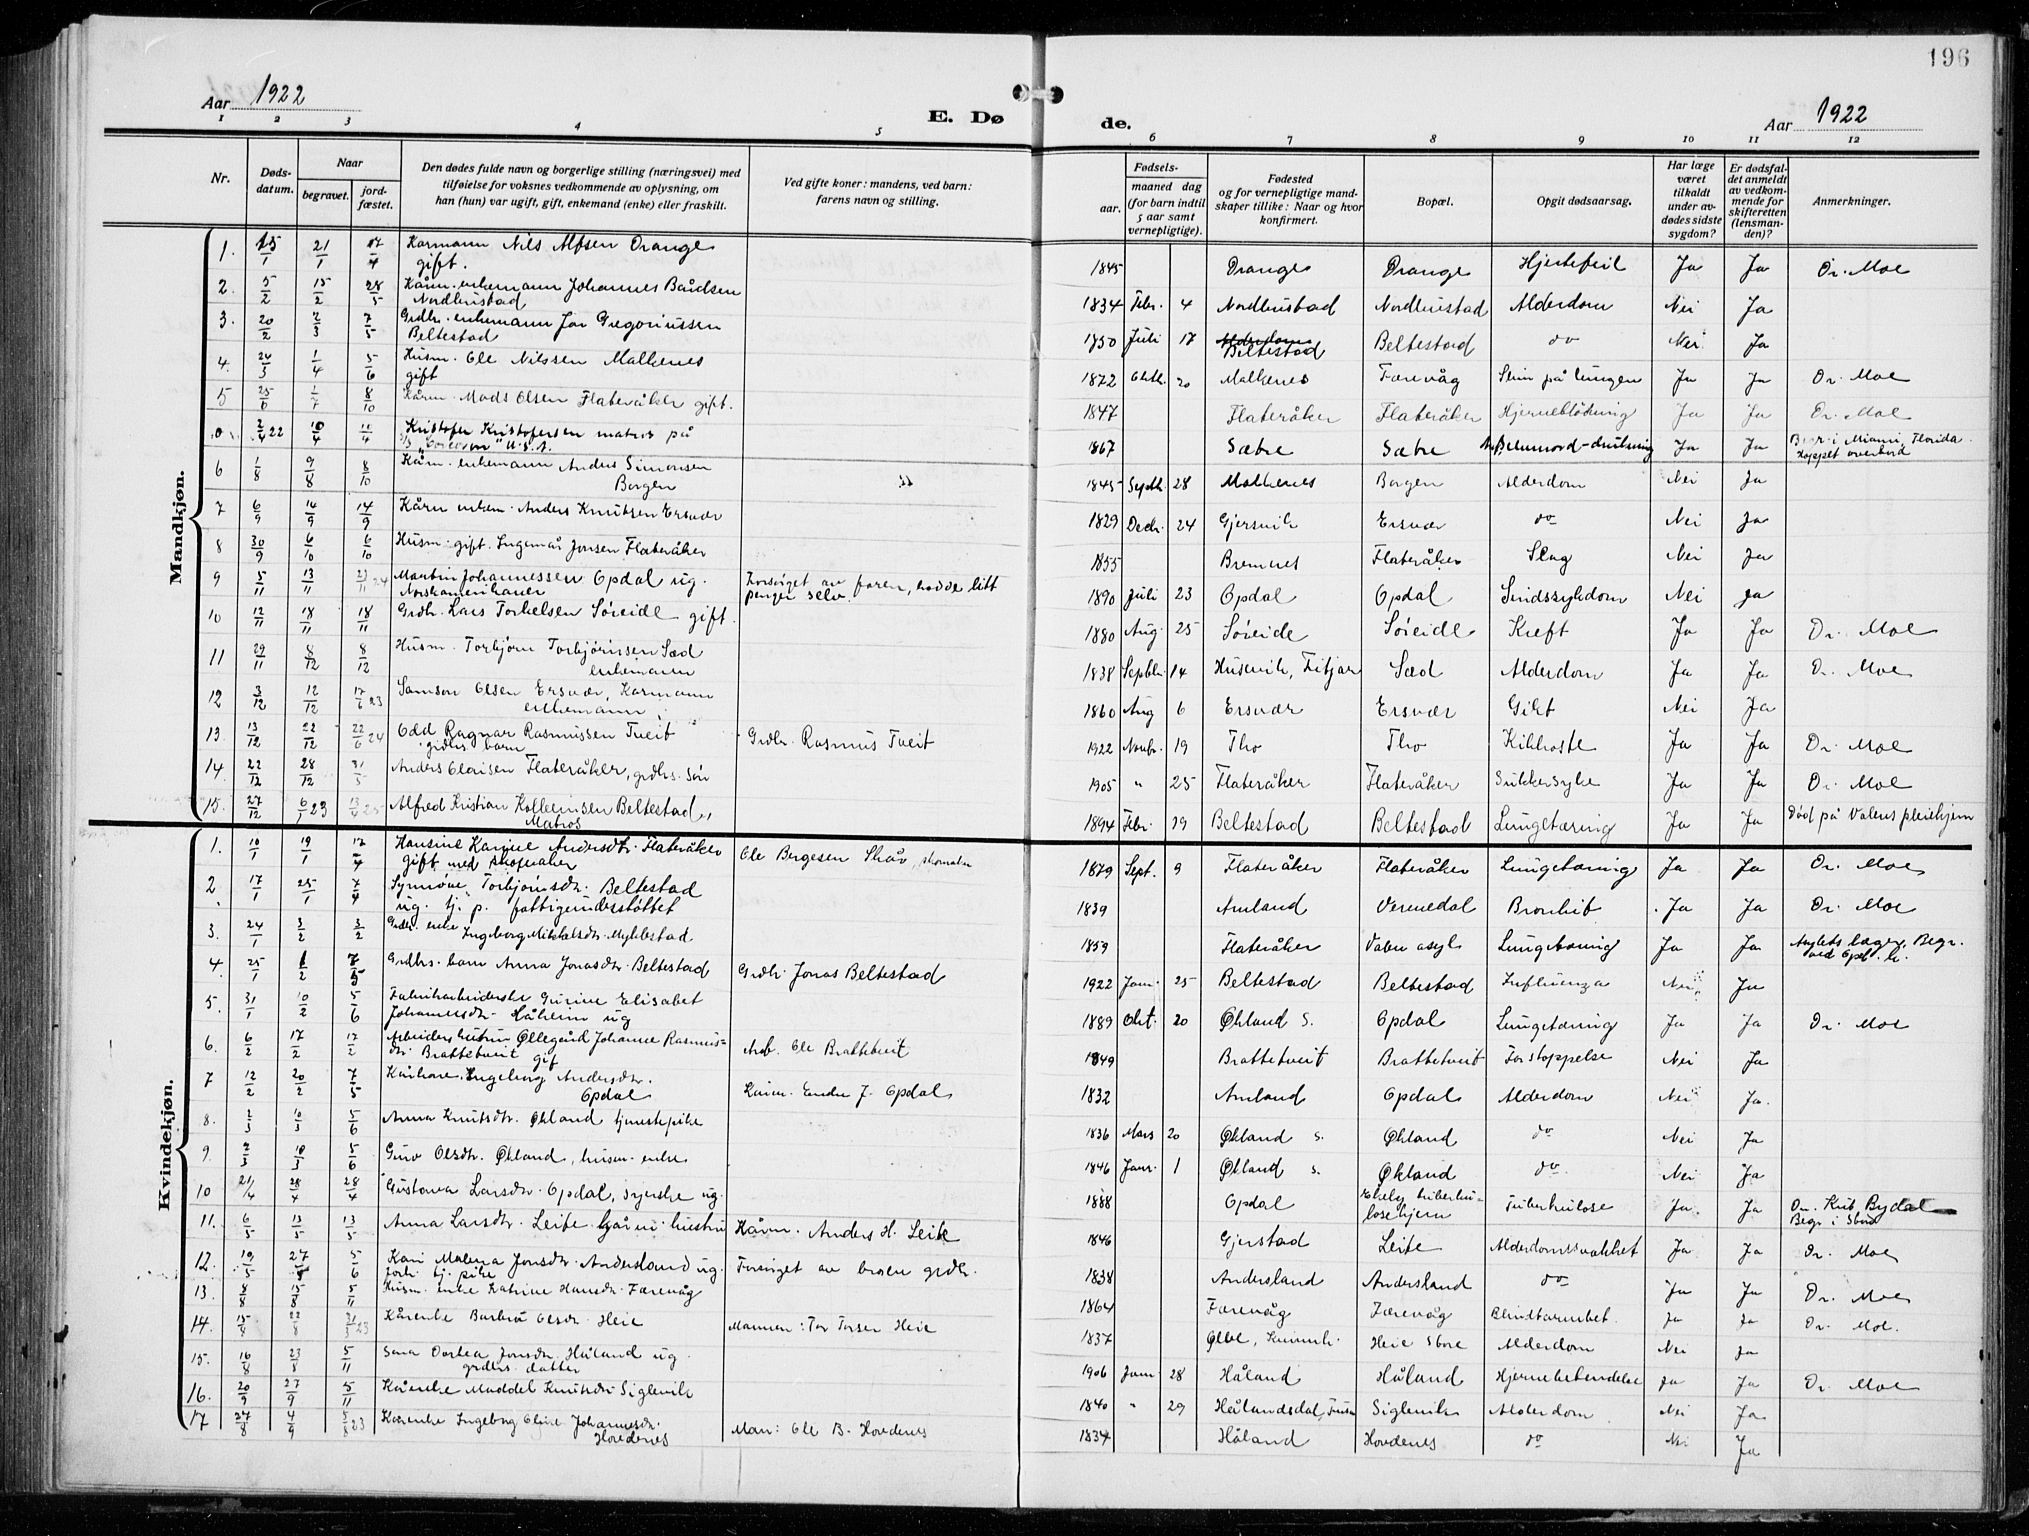 196
Aar 1922
E. Dø
de.
Aar 1922
1 2 3 4 5 6 7 8 9 10 11 12
Nr.
Døds-
datum.
Naar
begravet.
jord-
fæstet.
Den dødes fulde navn og borgerlige stilling (næringsvei) med
tilføielse for voksnes vedkommende av oplysning, om
han (hun) var ugift, gift, enkemand (enke) eller fraskilt.
Ved gifte koner: mandens, ved barn:
farens navn og stilling.
Fødsels-
aar.
maaned dag
(for barn indtil
5 aar samt
vernepligtige).
Fødested
og for vernepligtige mand-
skaper tillike: Naar og hvor
konfirmert.
Bopæl.
Opgit dødsaarsag.
Har læge
været
tilkaldt
under av-
dødes sidste
sygdom?
Er dødsfal-
det anmeldt
av vedkom-
mende for
skifteretten
(lensman-
den)?
Anmerkninger.
Mandkjøn.
1. 15/1 21/1 17/4 Kårmann Nils Alfsen Drange
gift. 1845 Drange Drange Hjertefeil Ja Ja Dr. Moe
2. 5/2 15/2 28/5 Kårm. enkemann Johannes Baldsen
Nordhustad 1834 Febr. 4 Nordhustad Nordhustad Alderdom Nei Ja
3. 20/2 2/3 7/5 Grdbr. enkemann Jon Gregoriussen
Beltestad 1850 Juli 17 Beltestad Beltestad do Nei Ja
4. 24/3 1/4 5/6 Husm. Ole Nilssen Malkenes
gift 1872 Oktb. 20 Malkenes Færevåg Slim på lungen Ja Ja Dr. Moe
5 25/6 1/7 8/10 Kårm. Mads Olsen Flateråker gift. 1847 Flateråker Flateråker Hjerneblødning Ja Ja Dr. Moe
0 2/4 22 10/4 11/4 Kristofer Kristofersen matros på
U.S.A. 1867 Sæbø Sæbø Selvmord-drukning Ja Ja Begr. i Miami, Florida
Hoppet overbord
6 1/8 9/8 8/10 Kårm. enkemann Anders Simonsen
Borgen 1845 Septb. 28 Malkenes Borgen Alderdom Nei Ja
7 6/9 14/9 14/9 Kårm enkem. Anders Knutsen Ersvær 1829 Decbr. 24 Gjersvik Ersvær do Nei Ja
8 30/9 6/10 6/10 Husm. gift. Ingemar Jonsen Flateråker 1855 Bremnes Flateråker Slag Nei Ja
9 5/11 13/11 23/11 24 Martin Johannessen Opdal ug.
Norskamerikaner Forsørget av faren, hadde litt
penger selv. 1890 Juli 23 Opdal Opdal Sindssykdom Nei Ja
10 12/11 18/11 18/11 Grdbr. Lars Torkelsen Søreide gift. 1880 Aug. 25 Søreide Søreide Kreft Ja Ja Dr. Moe
11 29/11 8/12 8/12 Husm. Torbjørn Torbjørnsen Sæd
enkemann 1838 Septbr. 14 Husevik, Fitjar Sæd Alderdom Ja Ja Dr. Moe
12 3/12 12/12 17/6 23 Samson Olsen Ersvær, Kårmann
enkemann 1860 Aug 6 Ersvær Ersvær Gikt Nei Ja
13. 13/12 22/12 22/6 24 Odd Ragnar Rasmussen Tveit
grdbrs barn Grdbr. Rasmus Tveit 1922 Novbr. 19 Tho Tho Kikhoste Ja Ja Dr. Moe
14 22/12 28/12 31/5 Anders Olaisen Flateråker, grdbrs. søn 1905 " 25 Flateråker Flateråker Sukkersyke Ja Ja Dr. Moe
15. 27/12 6/1 23 13/4 25 Alfred Kristian Kolbeinsen Beltestad,
Matros 1894 Febr. 19 Beltestad Beltestad Lungetæring Ja Ja Død på Valens pleiehjem
Kvindekjøn.
1. 10/1 19/1 17/4 Hansine Karine Andersdtr. Flateråker
gift med skomaker Ole Børgesen Skår, skomaker 1879 Sept. 9 Flateråker Flateråker Lungetæring Ja Ja Dr. Moe
2 17/1 25/1 7/4 Synnøve Torbjørnsdtr. Beltestad
ug. tj. p. fattigunderstøttet 1839 Amland Vernedal Bronkit Ja Ja Dr. Moe
3. 24/1 3/2 3/2 Grdbr. enke Ingeborg Mikkelsdtr. Myklestad 1859 Flateråker Valen asyl Lungetæring Ja Ja Asylets læge. Begr.
ved Opd. k.
4. 25/1 1/2 7/5 Grdbrs. barn Anna Jonasdtr. Beltestad Grdbr. Jonas Beltestad 1922 Jan. 25 Beltestad Beltestad Influenza Nei Ja
5. 31/1 10/2 5/6 Fabrikarbeiderske Gurine Elisabet
Johannesdtr. Håheim ug 1889 Okt. 20 Økland S. Opdal Lungetæring Ja Ja Dr. Moe
6. 6/2 17/2 17/2 Arbeiders hustru Øllegård Johanne Rasmus-
dtr. Brattetveit gif Arb. Ole Brattetveit 1849 Brattetveit Brattetveit Forstoppelse Nei Ja
7 12/2 20/2 7/5 Kårkone Ingeborg Andersdtr.
Opdal Kårm. Endre J. Opdal 1832 Amland Opdal Alderdom Nei Ja.
8. 2/3 10/3 5/6 Anna Knutsdtr. Økland tjenestepike 1836 Mars 20 Økland S. Økland do Nei Ja
9. 2/3 10/3 5/6 Guro Olsdtr. Økland, husm. enke 1846 Janr. 1 Økland S. Økland do Nei Ja
10 21/4 28/4 28/4 Gustava Larsdtr. Opdal, syerske ug. 1888 Opdal tuberku-
losehjem Tuberkulose Ja Ja Dr. Krib Bydal
Begr i Stord
11. 6/5 13/5 13/5 Anna Larsdtr. Leite kårm. hustru Kårm. Anders H. Leite 1846 Gjerstad Leite Alderdomssvakhet Ja Ja Dr. Moe
12. 19/5 27/5 5/6 Kari Malena Jonsdtr. Andersland ug.
forh. tj. pike Forsørget av broren grdbr. 1838 Andersland Andersland do Ja Ja Dr. Moe
13. 8/8 15/8 5/11 Husm. enke Katrine Hansdtr. Færevåg 1864 Færevåg Færevåg Blindtarmbet. Ja Ja Dr. Moe.
14. 15/8 22/8 21/3 23 Kårenke Barbro Olsdtr. Heie Mannen: Tor Torsen Heie 1837 Ølve, Kvinnh. Heie Store Alderdom Nei Ja
15. 16/8 23/8 5/11 Sara Dortea Jonsdtr. Håland ug.
grdbrs. datter 1906 Janr 28 Håland Håland Hjernebetendelse Ja Ja Dr. Moe
16. 20/9 27/9 5/11 Kårenke Maddel Knutsdtr Siglevik 1840 " 29 Hålandsdal, Fusa Siglevik Alderdom Nei Ja
17 27/8 4/9 5/8 23 Kårenke Ingeborg Oline Johannesdtr.
Hovdenes Man: Ole B. Hovdenes 1834 Håland Hovdenes do Nei Ja